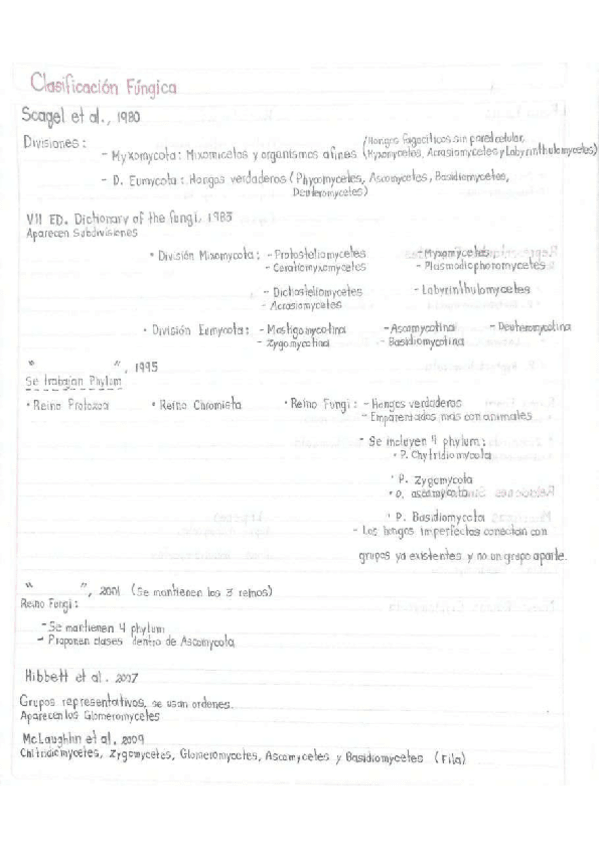 Clasificación Fúngica
Scagel et al., 1980
Divisiones:
/Hongos fagocíticos sin pared celular.
- Myxomycota: Mixomicetos y organismos afines (Myxomycetes, Acrasiomycetes y Labyrinthulomycetes)
- D. Eumycota: Hongos verdaderos (Phycomycetes, Ascomycetes, Basidiomycetes,
Deuteromycetes)
VII ED. Dictionary of the fungi, 1983
Aparecen Subdivisiones
• División Mixomycota: - Protosteliomycetes - Myxomycetes
- Ceratiomyxomycetes - Plasmodiophoromycetes
- Dictosteliomycetes - Labyrinthulomycetes
- Acrasiomycetes
• División Eumycota: - Mastigomycotina - Ascomycotina - Deuteromycotina
- Zygomycotina - Basidiomycotina
" ", 1995
Se trabajan Phylum
• Reino Protozoa • Reino Chromista • Reino Fungi: - Hongos verdaderos
- Emparentados más con animales
- Se incluyen 4 phylum:
• P. Chytridiomycota
• P. Zygomycota
• P. ascomycota
• P. Basidiomycota
- Los hongos imperfectos conectan con
grupos ya existentes y no un grupo aparte.
" ", 2001 (Se mantienen los 3 reinos)
Reino Fungi:
- Se mantienen 4 phylum
- Proponen clases dentro de Ascomycota
Hibbett et al. 2007
Grupos representativos, se usan ordenes.
Aparecen los Glomeromycetes
McLaughlin et al, 2009
Chitridiomycetes, Zygomycetes, Glomeromycetes, Ascomycetes y Basidiomycetes (Fila)